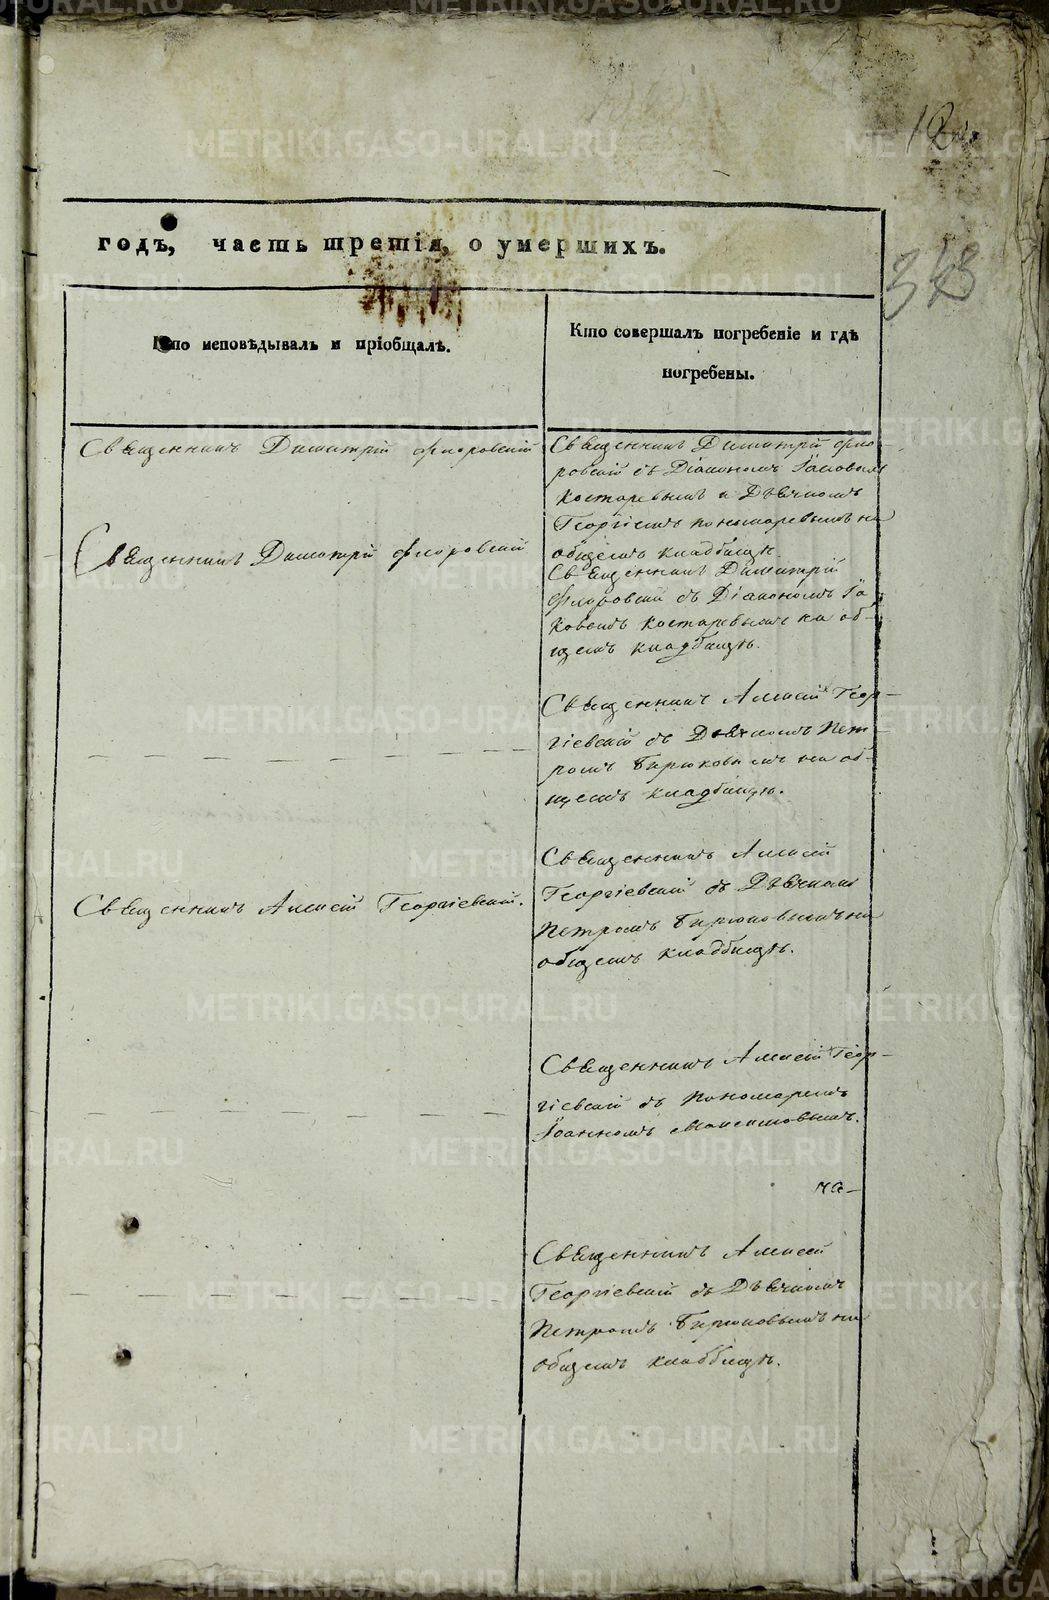 годъ, часть третія, о умершихъ.
Кто исповѣдывалъ и пріобщалъ.
Кто совершалъ погребеніе и гдѣ
погребены.
Священникъ Димитрій Флоровскій
Священникъ Димитрій Фло-
ровскій съ Діакономъ Іаковомъ
Костаревымъ и Дьячкомъ
Георгіемъ Пономаревымъ на
общемъ кладбищѣ.
Священникъ Димитрій Флоровскій
Священникъ Димитрій
Флоровскій съ Діакономъ Іа
ковомъ Костаревымъ на об-
щемъ кладбищѣ.
Священникъ Алексій Геор-
гіевскій съ Дьячкомъ Пет-
ромъ Бирюковымъ на об-
щемъ кладбищѣ.
Священникъ Алексій Георгіевскій.
Священникъ Алексій
Георгіевскій съ Дьячкомъ
Петромъ Бирюковымъ на
общемъ кладбищѣ.
Священникъ Алексій Геор-
гіевскій съ Пономаремъ
Іоанномъ Максимовымъ.
на-
Священникъ Алексій
Георгіевскій съ Дьячкомъ
Петромъ Бирюковымъ на
общемъ кладбищѣ.
METRIKI.GASO-URAL.RU